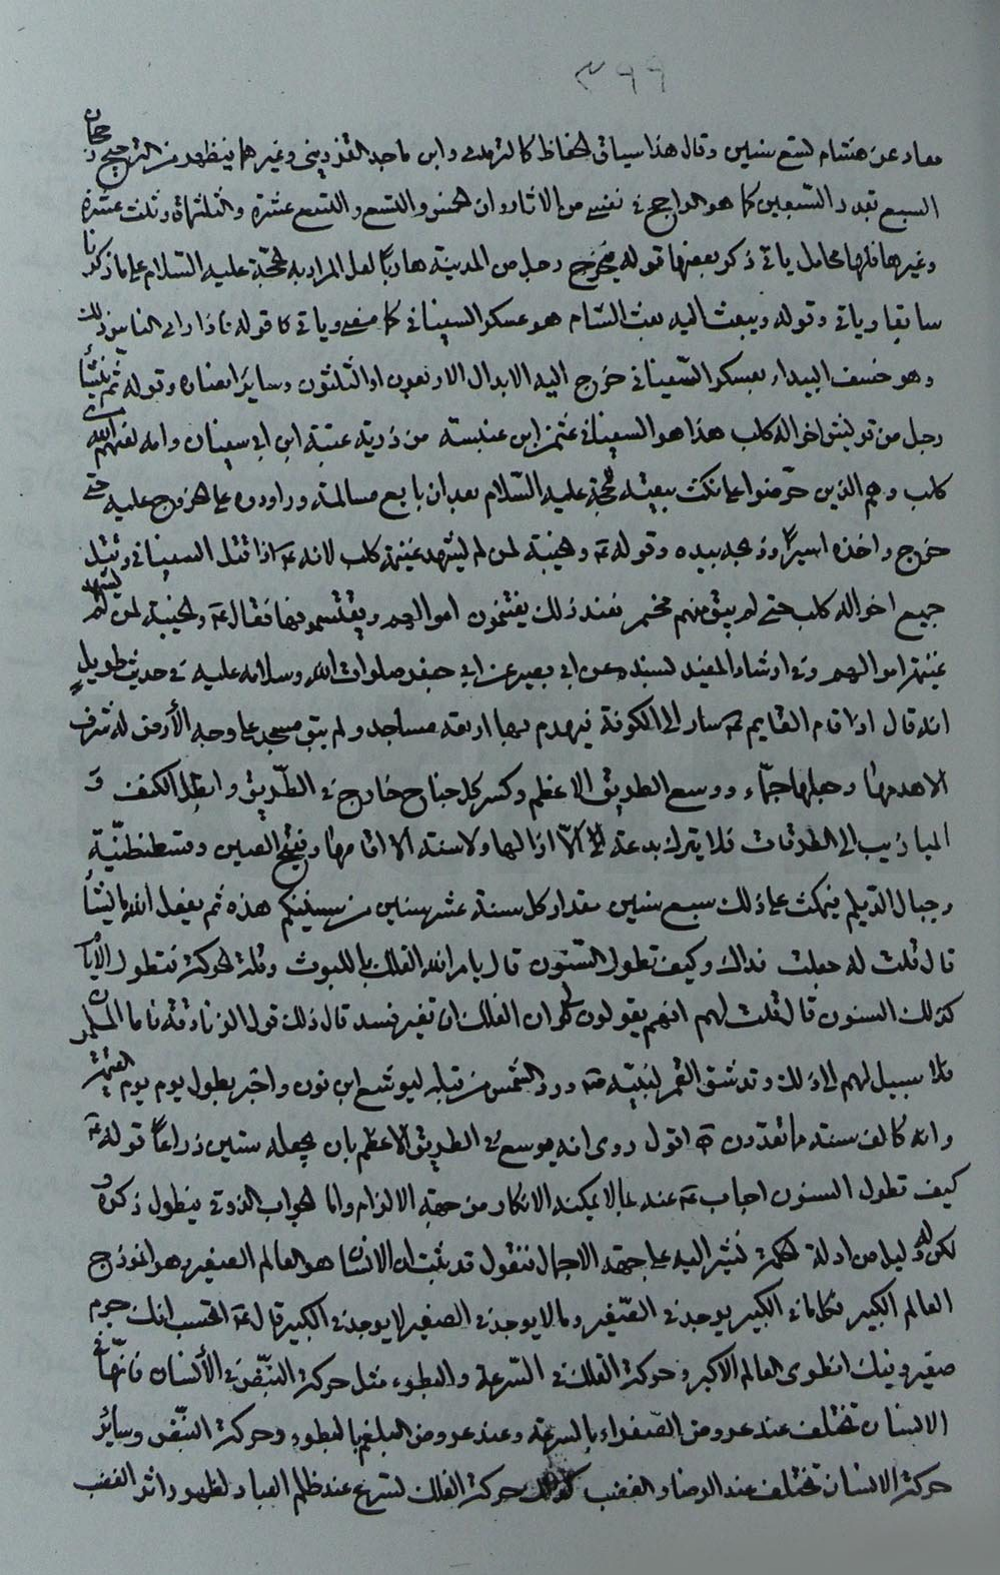 ٣٩٩
معاد عن هشام لسبع سنين وقال هذا سياق الحفاظ كالترمدى وابن ماجد القزوينى وغيرهما ينظهر من الترجيح رجحان
السبع تعدد السبعين كما هو الراجح فى نفسى من الاثار وان الخمس والتسع والتسع عشرة والثلثماة وثلث عشرة
وغيرها فلها محامل ياتى ذكر بعضها قوله فيخرج رجل من المدينة هاربًا لعل المراد به الحجة عليه السلام على ما ذكرنا
سابقا وياتى وقوله ويبعث اليه بعث الشام هو عسكر السفيانى كما مضى وياتى كا قوله فاذا راى الناس ذلك
وهو خسف البيداء بعسكر السفيانى خرج اليه الابدال الاربعون او الثلثون وسائر اعضاده وقوله ثم ينشأ
رجل من قريش اخواله كلب هذا هو السفيانى عثمن ابن عنبسة من ذرية عتبة ابن ابى سفيان وامه لعنهم الله من
كلب وهم الذين حرضوا على نكث بيعته للحجة عليه السلام بعد ان بايع مسالمة وراودوه على الخروج عليه حتى
خرج واخذه اسيرًا وذبحه بيده وقوله ع والخيبة لمن لم يشهد غنيمة كلب لانه ع اذا قتل السفيانى وقتل
جميع اخواله كلب حتى لم يبق منهم مخبر فعند ذلك يغتنمون اموالهم ويقتسمونها فقال ع والخيبة لمن لم يشهد
غنيمة اموالهم وفى ارشاد المفيد بسنده عن ابى بصير عن ابى جعفر صلوات الله وسلامه عليه فى حديث طويل
انه قال اذا قام القايم ع سار الى الكوفة فيهدم بها اربعة مساجد ولم يبق مسجد على وجه الأرض له شرف
الا هدمها وجعلها جمّاء ووسع الطريق الاعظم وكسر كل جناح خارج فى الطّريق وابطل الكنف و
الميازيب الى الطرقات فلا يترك بدعة الا ازالها ولا سنة الا اقامها ويفتح الصين وقسطنطنّية
وجبال الديلم فيمكث على ذلك سبع سنين مقدار كل سنة عشر سنين من سنينكم هذه ثم يفعل الله ما يشأ
قال قلت له جعلت فداك وكيف تطول السّنون قال يامر الله الفلك باللبوث وقلة الحركة فتطول الأيام
كذلك السنون قال قلت لهم انهم يقولون ان الفلك ان تغير فسد قال ذلك قول الزنادقة فاما المسلمون
فلا سبيل لهم الى ذلك وقد شق القمر لنبيّه ص ورد الشمس من قبله ليوشع ابن نون واخبر بطول يوم القيمة
وانه كالف سنة مما تعدّون اقول روى انه يوسع الطريق الاعظم بان يجعله ستين ذراعاً قوله ع
كيف تطول السنون اجاب ع عنه بما لا يمكنه الانكار من جهة الالزام واما الجواب الذوقى فيطول ذكره
لكن دليل من ادلة الحكمة نشير اليه على جهة الاجمال فنقول قد ثبت ان الانسان هو العالم الصغير وهو انموذج
العالم الكبير فكلما فى الكبير يوجد فى الصّغير وما لا يوجد فى الصغير لا يوجد فى الكبير قال ع اتحسب انك جرم
صغير وفيك انطوى العالم الاكبر وحركة الفلك فى السّرعة والبطوء مثل حركة النبّض فى الأنسان فانّها فى
الانسان تختلف عند عروض الصّفراء بالسرعة وعند عروض البلغم بالبطوء وحركة النّفس وسائر
حركة الانسان تختلف عند الرضا والغضب كذلك حركة الفلك تسرع عند ظلم العباد لظهور اثر الغضب